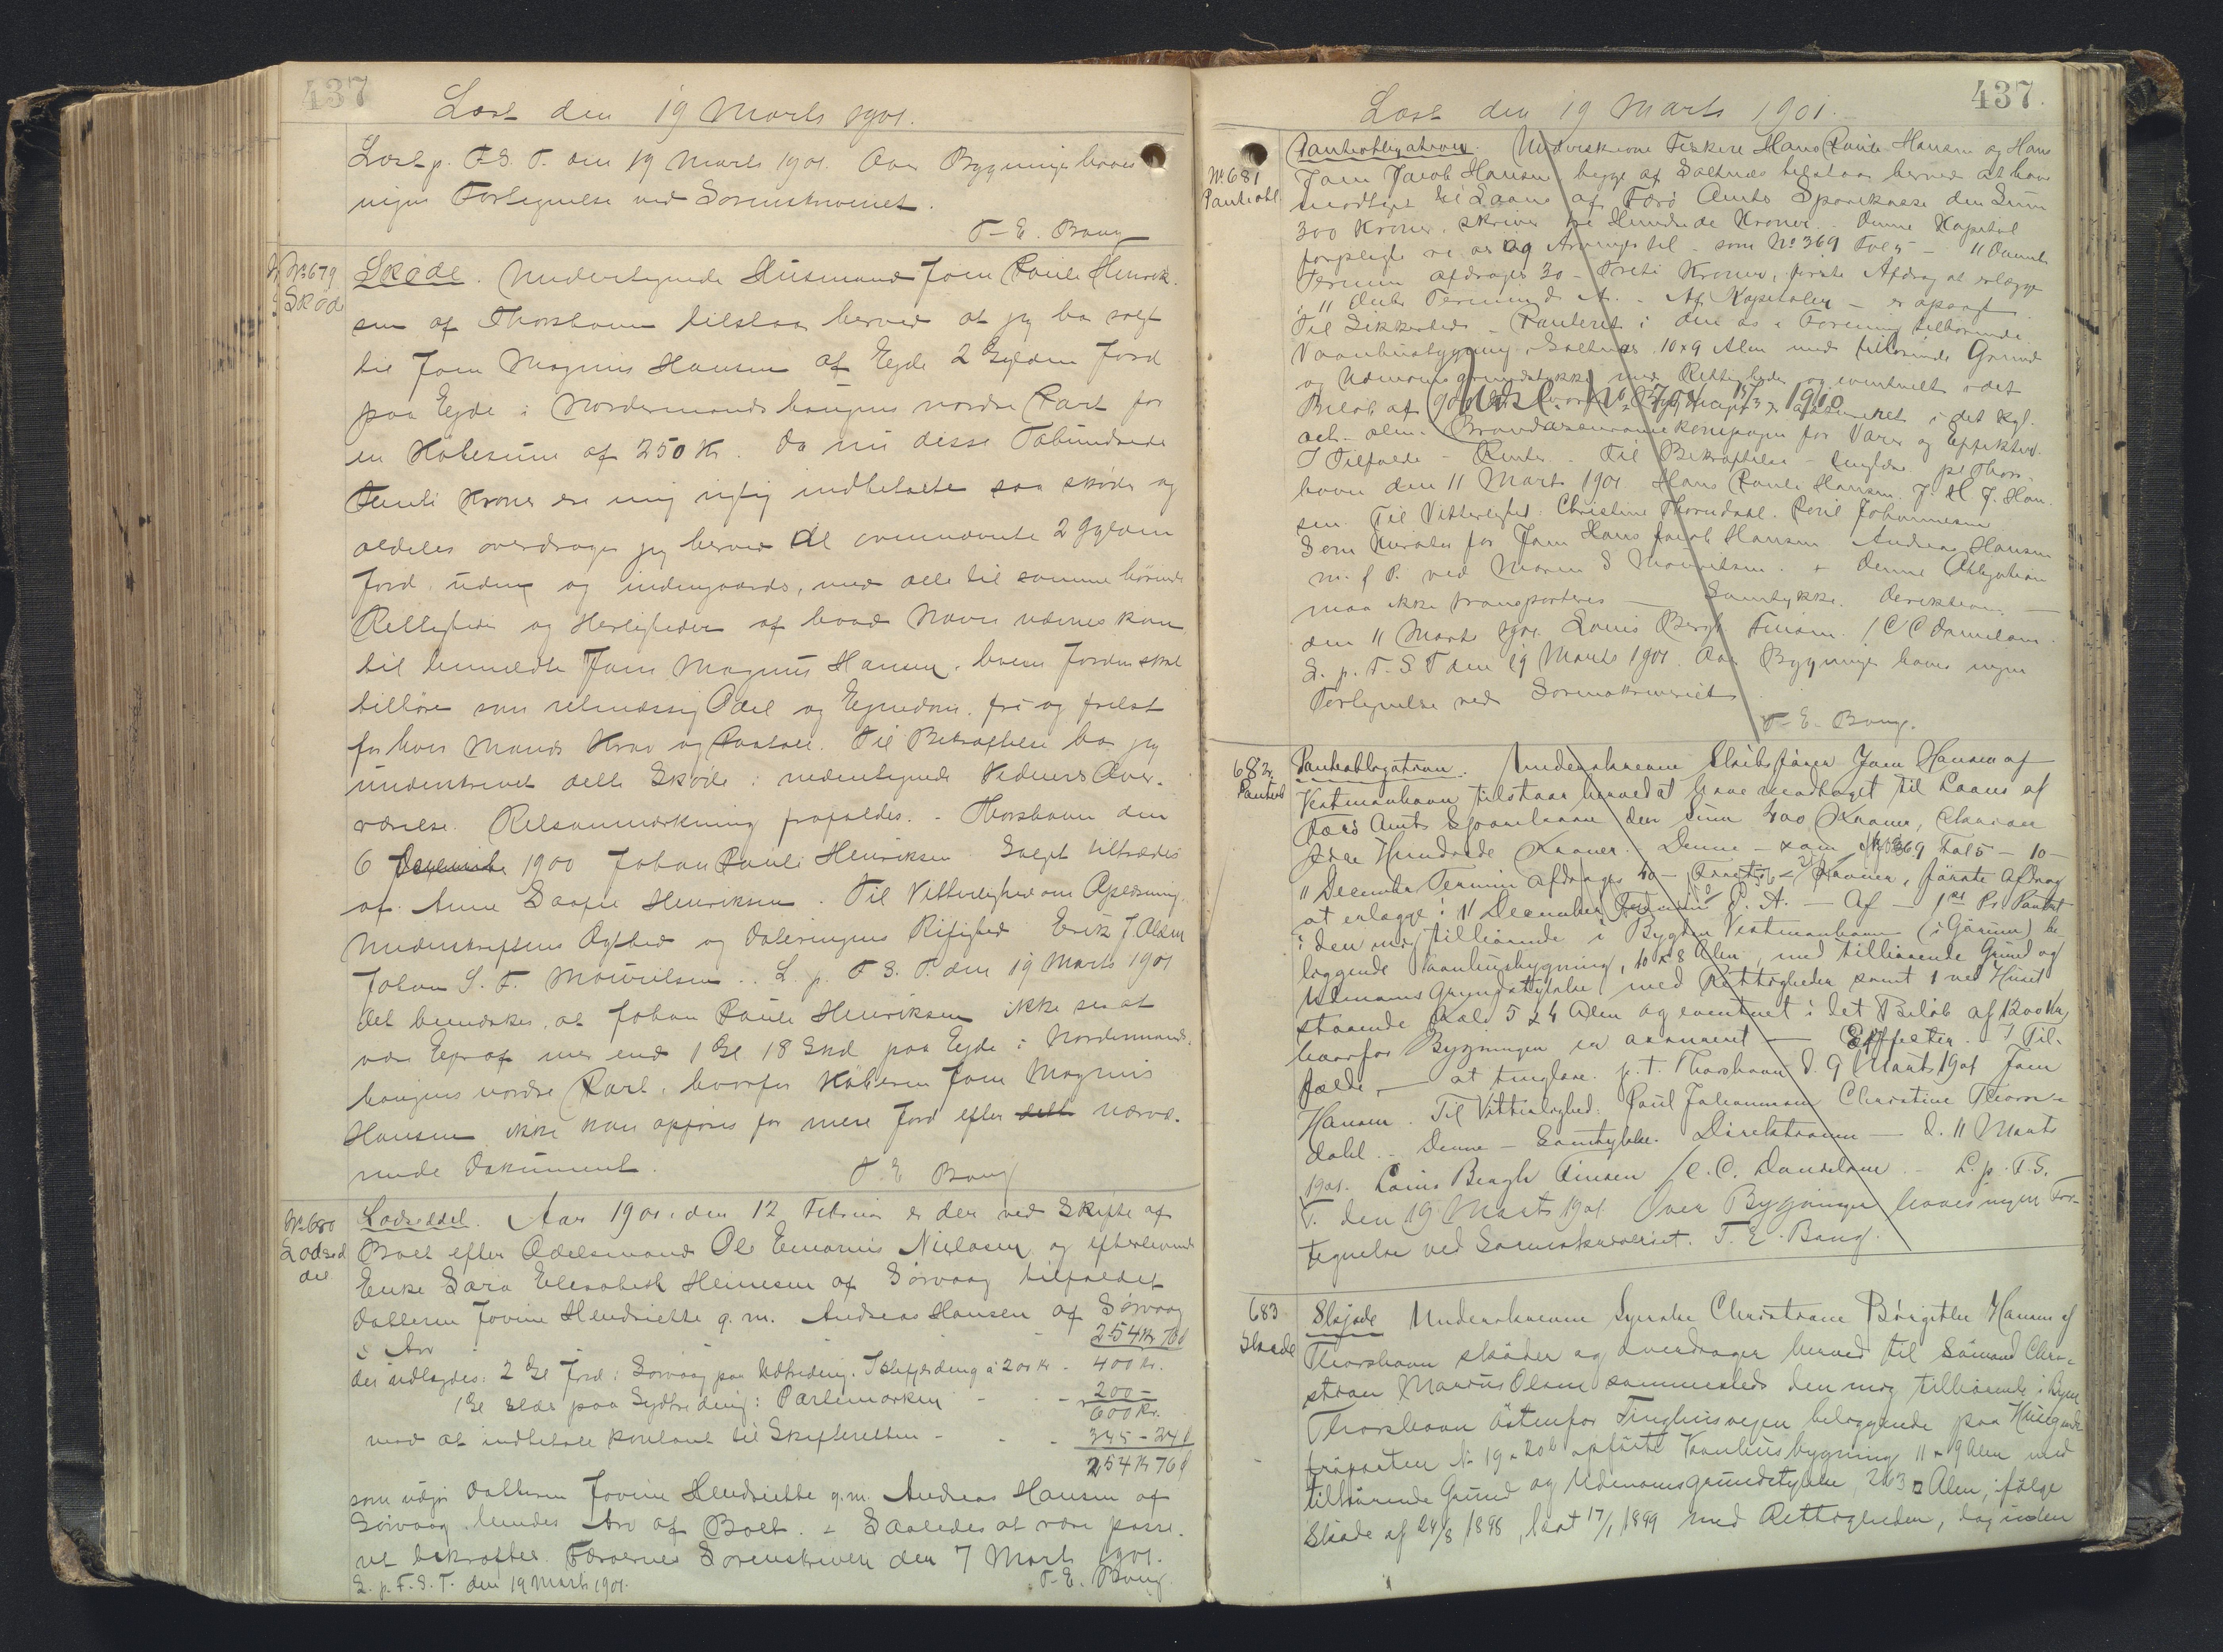 437
Læst den 19 Marts 1901.
Læst p. F. S. T. den 19 Marts 1901. Over Bygninger haves
ingen Fortegnelse ved Sorenskriveriet.
T. E. Bang
No 679
Skøde
Skøde. Undertegnede Husmand Joen Poule Henrik-
sen af Thorshavn tilstaar herved at jeg har solgt
til Joen Magnus Hansen af Ejde 2 Gylden Jord
paa Ejde i Nordermandshaugens nordre Part for
en Købesum af 250 Kr. Da nu disse Tohundrede
Kroner ere mig rigtig indbetalte saa skøder og
aldeles overdrager jeg herved de ovennævnte 2 Gylden
Jord, uden og indengaards, med alle til samme hørende
Rettigheder og Herligheder af hvad Navn nævnes kan
til bemeldte Joen Magnus Hansen, hvem Jorden skal
tilhøre som retmæssig Odel og Ejendom, fri og frelst
for hver Mands Krav og Paatale. Til Bekræftelse har jeg
underskrevet dette Skøde i nedentegnede Vidners Over-
værelse. Retsanmærkning frafaldes. - Thorshavn den
6 December 1900 Johan Poule Henriksen. Salget tiltrædes
af Anne Henriksen. Til Vitterlighed om Oplæsning,
Underskriftens Ægthed og Dateringens Rigtighed Erik J Olsen
Johan S. F. Mouritsen. L. p. F. S. T. den 19 Marts 1901
Det bemærkes, at Johan Poule Henriksen ikke ses at
være Ejer af mer end 1 Gl. 18 Skd paa Ejde i Nordermands-
haugens nordre Part, hvorfor Køberen Joen Magnus
Hansen ikke kan opføres for mere Jord efter nærvæ-
rende Dokument.
T. E Bang
No 680
Lodsed
del
Lodseddel. Aar 1901. den 12 Februar er der ved Skifte af
Boet efter Odelsmand Ole Nielsen og efterlevende
Enke Sara Elesabeth Heinesen af Sørvaag tilfaldet
Datteren Jovine Hendriette g. m. Andreas Hansen af Sørvaag
i Arv - 254 Kr 76 Ø
der udlagdes: 2 Gl Jord i Sørvaag paa à 200 Kr - 400 Kr.
1 Gl paa - 200 -
600 Kr.
mod at indbetale kontant til Skifteretten - 345 - 24 Ø
254 Kr 76 Ø
som udgør Datteren Jovine Hendriette g. m. Andreas Hansen af
Sørvaag hendes Arv af Boet. - Saaledes at være passe-
ret bekræftes. Færøernes Sorenskriveri den 7 Marts 1901.
L. p. F. S. T. den 19 Marts 1901.
T. E. Bang.
437.
Læst den 19 Marts 1901.
No 681
Panteobl
Panteobligation. Underskrevne Fiskere Hans Poule Hansen og Hans
Joen Jacob Hansen begge af Saltnæs tilstaar herved at have
modtaget til Laans af Færø Amts Sparekasse den Sum
300 Kroner, skriver tre Hundrede Kroner. Denne Kapital
forpligte vi os og Arvinger til - som No 369 Fol 5 - 11 Decembr
Termin afdrages 30 - Treti Kroner, første Afdrag at erlægge
i 11 Decbr Termin d. A. - Af Kapitalen - er opsagt
Til Sikkerhed - Panteret i den os i Forening tilhørende
Vaanhusbygning i Saltnæs 10 x 9 Alen med tilhørende Grund
og Udenomsgrundstykke med Rettigheder og eventuelt i det
Beløb af 900 Kr. assureret i det Kgl.
Udsl. No 270 17/3 1910
oct. alm. Brandassurancekompagni for Varer og Effekter.
I Tilfælde - Renter. Til Bekræftelse - tinglæse. pt Thors-
havn den 11 Marts 1901. Hans Poule Hansen. J. H. J. Han-
sen. Til Vitterlighed: Christine Thorsdahl. Poul Johannesen
Som Kurator for Joen Hans Jacob Hansen Andreas Hansen
m. f. P. ved Maren S Mouritsen. - Denne Obligation
maa ikke transporteres - Samtykke. Direktionen -
den 11 Marts 1901. Louis Bergh Finsen. / C C Danielsen.
L. p. F. S T den 19 Marts 1901. Over Bygninger haves ingen
Fortegnelse ved Sorenskriveriet
T. E. Bang.
682.
Pantob
Panteobligation. Underskrevne Skibsfører Joen Hansen af
Vestmanhavn tilstaar herved at have modtaget til Laans af
Færø Amts Sparekasse den Sum 400 Kroner, skriver
fire Hundrede Kroner. - Denne - som No 369 Fol 5 - 10 -
11 December Termin afdrages 40 - Kroner, første Afdrag
at erlægge i 11 December Termin d. A. - Af - 1ste Pr. Panteret
i den mig tilhørende i Bygden Vestmanhavn (i Gørum) be-
liggende Vaanhusbygning, 10 x 8 Alen, med tilhørende Grund og
Udenoms Grundstykke med Rettigheder samt 1 ved Huset
staaende 5 x 4 Alen og eventuet i det Beløb af 1200 Kr,
hvorfor Bygningen er assureret - Effecter. - I Til-
fælde - at tinglæse. p. t. Thorshavn d. 9 Marts 1901 Joen
Hansen. Til Vitterlighed: Poul Johannesen Christine Thors-
dahl. - Denne - Samtykke. Direktionen - d. 11 Marts
1901. Louis Bergh Finsen / C. C. Danielsen. - L. p. F. S.
T. den 19 Marts 1901 Over Bygninger haves ingen For-
tegnelse ved Sorenskriveriet. T. E. Bang.
683
Skøde
Skjøde Underskrevne Syerske Christiane Birgithe Hansen af
Thorshavn skøder og overdrager herved til Sømand Chri-
stian Marius Olsen sammesteds den mig tilhørende i Byen
Thorshavn østenfor Tinghusvejen beliggende paa
No 19 a 20b opførte Vaanhusbygning 11 x 9 Alen med
tilhørende Grund og Udenomsgrundstykke 263 □ Alen, ifølge
Skøde af 24/8 1898, læst 17/1 1899 med Rettigheder, dog uden